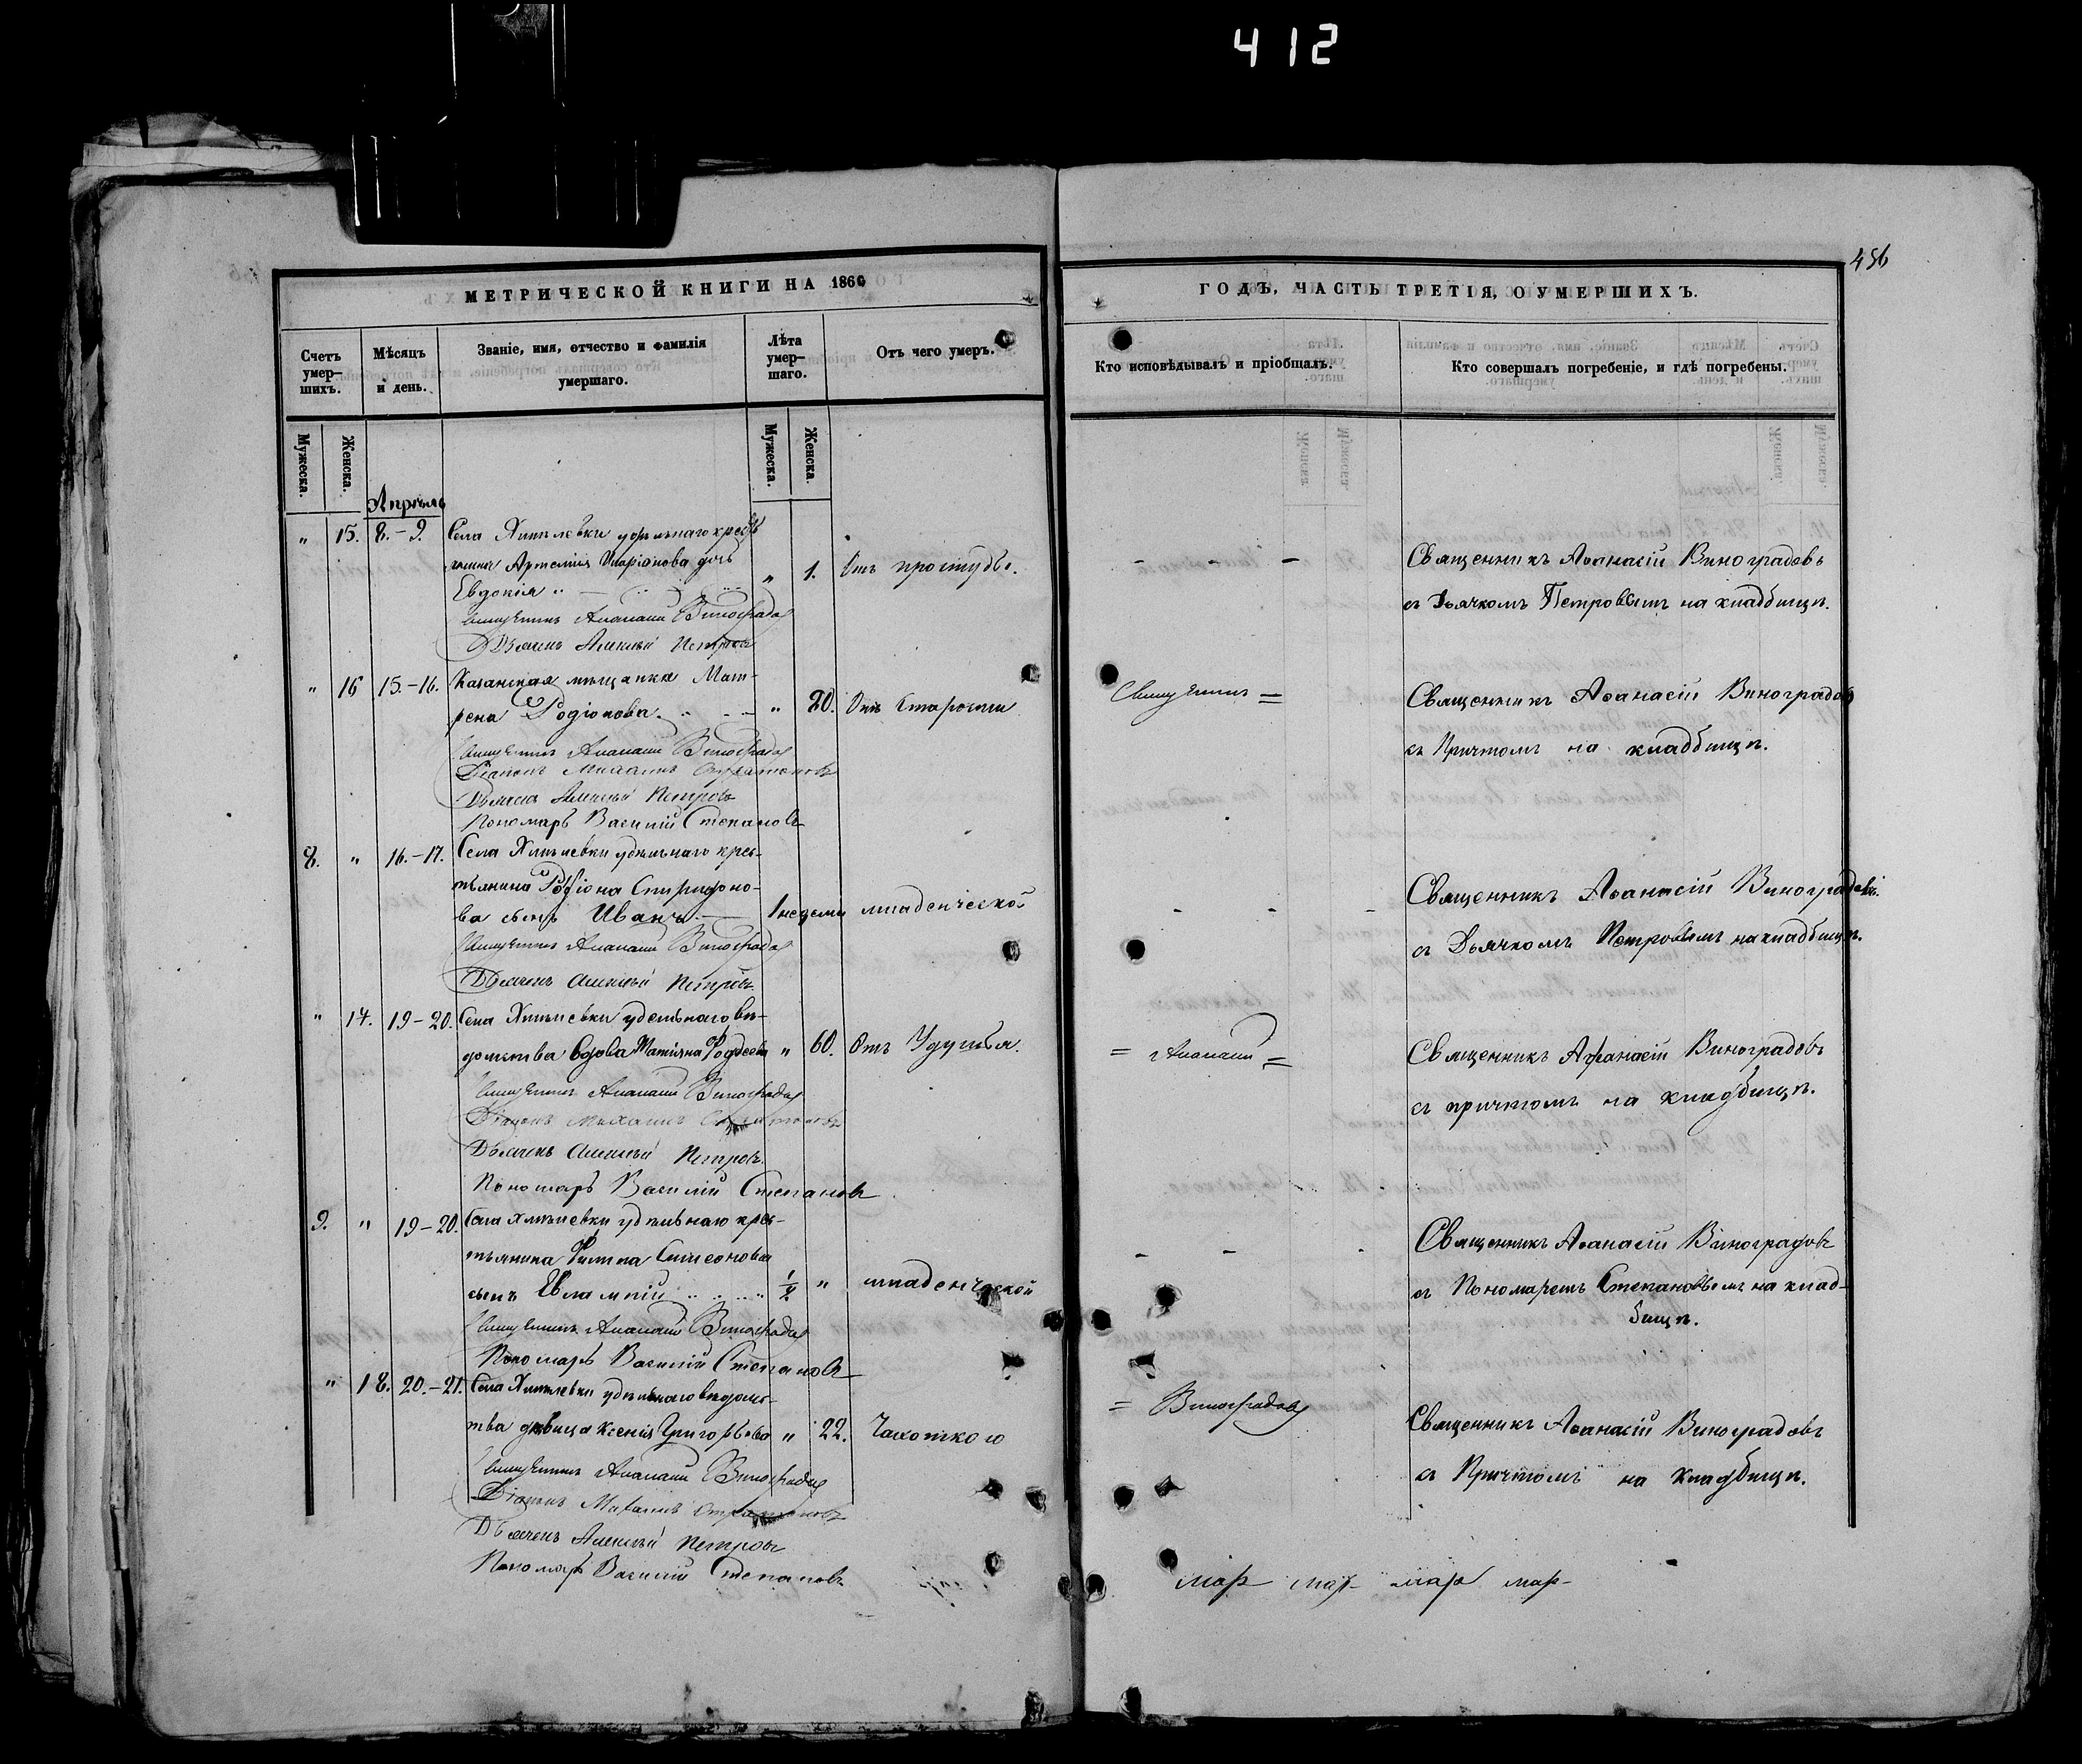 412
456
МЕТРИЧЕСКОЙ КНИГИ НА 1866
ГОДЪ, ЧАСТЬ ТРЕТІЯ, О УМЕРШИХЪ.
Счетъ умер-шихъ.
Мѣсяцъ и день.
Званіе, имя, отчество и фамилія умершаго.
Лѣта умер-шаго.
Отъ чего умеръ.
Кто исповѣдывалъ и пріобщалъ.
Кто совершалъ погребеніе, и гдѣ погребены.
Мужеска.
Женска.
Мужеска.
Женска.
Апрѣль
" 15. 8.-9. Села Хмѣлевки удѣльнаго крест
Артемія Иларіонова дочь
Евдокія " 1. Отъ простуды.
Священникъ Аѳанасій Виноградовъ
Дьячекъ Алексѣй Петровъ
Священникъ Аѳанасій Виноградовъ
съ Дьячкомъ Петровымъ на кладбищѣ.
" 16 15.-16. Казанская мѣщанка Мат-
рена Родіонова. " 80. Отъ Старости
Священникъ Аѳанасій Виноградовъ
Діаконъ Михаилъ
Дьячекъ Алексѣй Петровъ
Пономарь Василій Степановъ
Священникъ =
Священникъ Аѳанасій Виноградовъ
съ Причтомъ на кладбищѣ.
8. " 16.-17. Села Хмѣлевки удѣльнаго крес-
тьянина Родіона Спиридоно-
ва сынъ Иванъ. 1 недели младенческой
Священникъ Аѳанасій Виноградовъ
Дьячекъ Алексѣй Петровъ.
Священникъ Аѳанасій Виноградовъ.
съ Дьячкомъ Петровымъ на кладбищѣ.
" 17. 19-20. Села Хмѣлевки удѣльнаго вѣ-
домства вдова " 60. Отъ Удушья.
Священникъ Аѳанасій Виноградовъ
Діаконъ Михаилъ
Дьячекъ Алексѣй Петровъ.
Пономарь Василій Степановъ
= Аѳанасій =
Священникъ Аѳанасій Виноградовъ
съ причтомъ на кладбищѣ.
9. " 19-20. Села Хмѣлевки удѣльнаго крес-
тьянина Филипа Симеонова
сынъ Евлампій 1/2 " младенческой
Священникъ Аѳанасій Виноградовъ
Пономарь Василій Степановъ
Священникъ Аѳанасій Виноградовъ
съ Пономаремъ Степановымъ на клад-
бищѣ.
" 18. 20.-21. Села Хмѣлевки удѣльнаго вѣдомс-
тва дѣвица Ксенія Григорьева " 22. Чахоткою
Священникъ Аѳанасій Виноградовъ
Діаконъ Михаилъ
Дьячекъ Алексѣй Петровъ
Пономарь Василій Степановъ
= Виноградовъ
Священникъ Аѳанасій Виноградовъ
съ Причтомъ на Кладбищѣ.
мар мар мар мар